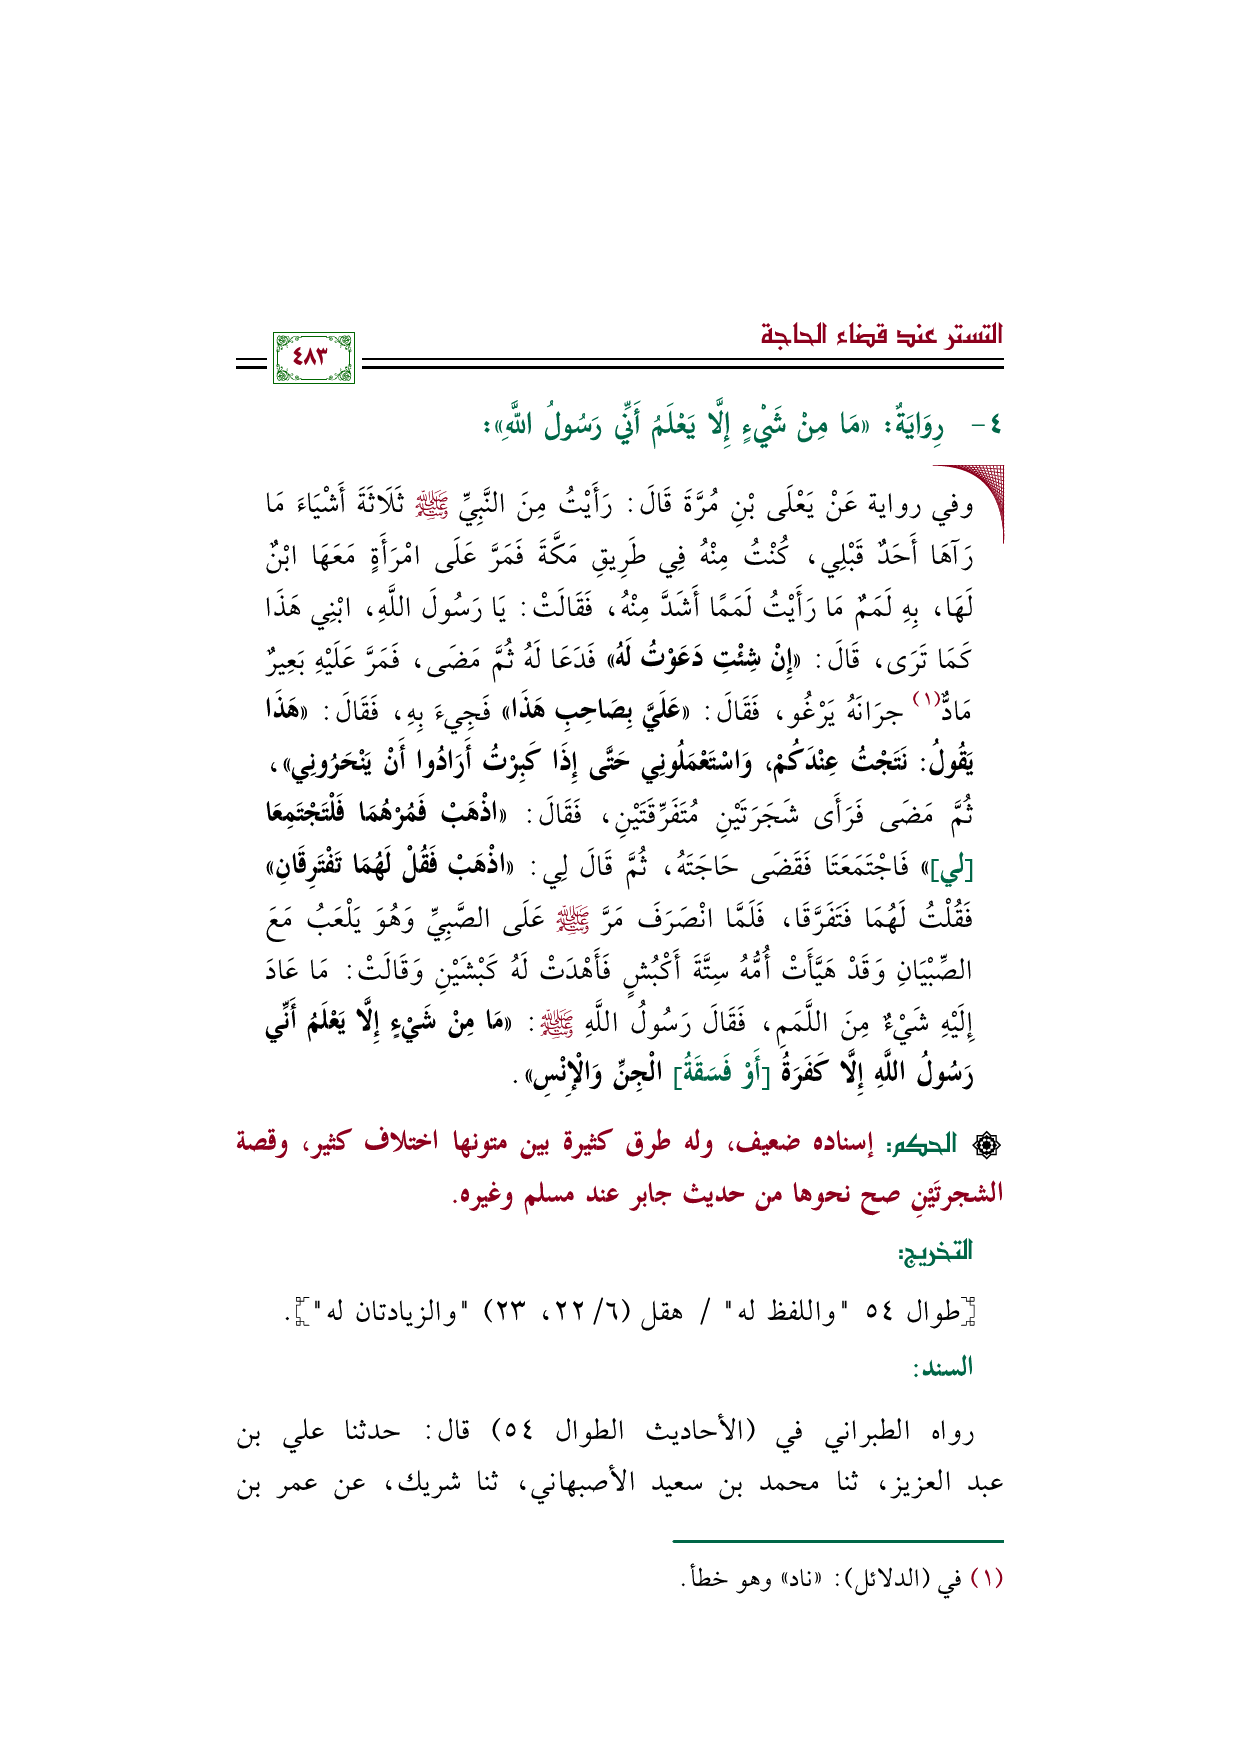 التستر عند قضاء الحاجة
٤٨٣
٤- رِوَايَةٌ: «مَا مِنْ شَيْءٍ إِلَّا يَعْلَمُ أَنِّي رَسُولُ اللَّهِ»:
وفي رواية عَنْ يَعْلَى بْنِ مُرَّةَ قَالَ: رَأَيْتُ مِنَ النَّبِيِّ ﷺ ثَلَاثَةَ أَشْيَاءَ مَا
رَآهَا أَحَدٌ قَبْلِي، كُنْتُ مِنْهُ فِي طَرِيقِ مَكَّةَ فَمَرَّ عَلَى امْرَأَةٍ مَعَهَا ابْنٌ
لَهَا، بِهِ لَمَمٌ مَا رَأَيْتُ لَمَمًا أَشَدَّ مِنْهُ، فَقَالَتْ: يَا رَسُولَ اللَّهِ، ابْنِي هَذَا
كَمَا تَرَى، قَالَ: «إِنْ شِئْتِ دَعَوْتُ لَهُ» فَدَعَا لَهُ ثُمَّ مَضَى، فَمَرَّ عَلَيْهِ بَعِيرٌ
مَادٌّ(١) جرَانَهُ يَرْغُو، فَقَالَ: «عَلَيَّ بِصَاحِبِ هَذَا» فَجِيءَ بِهِ، فَقَالَ: «هَذَا
يَقُولُ: نَتَجْتُ عِنْدَكُمْ، وَاسْتَعْمَلُونِي حَتَّى إِذَا كَبِرْتُ أَرَادُوا أَنْ يَنْحَرُونِي»،
ثُمَّ مَضَى فَرَأَى شَجَرَتَيْنِ مُتَفَرِّقَتَيْنِ، فَقَالَ: «اذْهَبْ فَمُرْهُمَا فَلْتَجْتَمِعَا
[لي]» فَاجْتَمَعَتَا فَقَضَى حَاجَتَهُ، ثُمَّ قَالَ لِي: «اذْهَبْ فَقُلْ لَهُمَا تَفْتَرِقَانِ»
فَقُلْتُ لَهُمَا فَتَفَرَّقَا، فَلَمَّا انْصَرَفَ مَرَّ ﷺ عَلَى الصَّبِيِّ وَهُوَ يَلْعَبُ مَعَ
الصِّبْيَانِ وَقَدْ هَيَّأَتْ أُمُّهُ سِتَّةَ أَكْبُشٍ فَأَهْدَتْ لَهُ كَبْشَيْنِ وَقَالَتْ: مَا عَادَ
إِلَيْهِ شَيْءٌ مِنَ اللَّمَمِ، فَقَالَ رَسُولُ اللَّهِ ﷺ: «مَا مِنْ شَيْءٍ إِلَّا يَعْلَمُ أَنِّي
رَسُولُ اللَّهِ إِلَّا كَفَرَةُ [أَوْ فَسَقَةُ] الْجِنِّ وَالْإِنْسِ».
الحكم: إسناده ضعيف، وله طرق كثيرة بين متونها اختلاف كثير، وقصة
الشجرتَيْنِ صح نحوها من حديث جابر عند مسلم وغيره.
التخريج:
[طوال ٥٤ "واللفظ له" / هقل (٦/ ٢٢، ٢٣) "والزيادتان له"].
السند:
رواه الطبراني في (الأحاديث الطوال ٥٤) قال: حدثنا علي بن
عبد العزيز، ثنا محمد بن سعيد الأصبهاني، ثنا شريك، عن عمر بن
(١) في (الدلائل): «ناد» وهو خطأ.